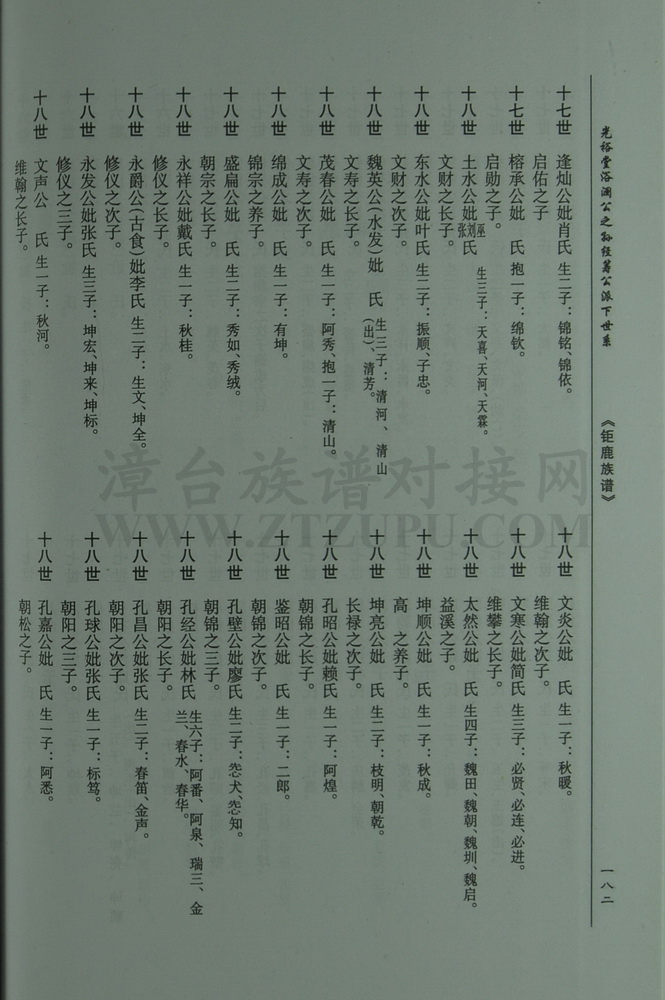 光裕堂浴澜公之孙经万公派下世系
《钜鹿族谱》
一八二
十七世 逢灿公妣肖氏 生二子：锦铭、锦依。
启佑之子
十七世 榕承公妣 氏 抱一子：绵钦。
启勋之子。
十八世 土水公妣张刘巫氏 生三子：天喜、天河、天霖。
文财之长子。
十八世 东水公妣叶氏 生二子：振顺、子忠。
文财之次子。
十八世 魏英公（水发）妣 氏 生三子：清河、清山（出）、清芳。
文寿之长子。
十八世 茂春公妣 氏 生一子：阿秀、抱一子：清山。
文寿之次子。
十八世 绵成公妣 氏 生一子：有坤。
锦宗之养子。
十八世 盛扁公妣 氏 生二子：秀如、秀绒。
朝宗之长子。
十八世 永祥公妣戴氏 生一子：秋桂。
修仪之长子。
十八世 永爵公（古食）妣李氏 生二子：生文、坤全。
修仪之次子。
十八世 永发公妣张氏 生三子：坤宏、坤来、坤标。
修仪之三子。
十八世 文声公 氏 生一子：秋河。
维翰之长子。
十八世 文炎公妣 氏 生一子：秋暖。
维翰之次子。
十八世 文寒公妣简氏 生三子：必贤、必连、必进。
维攀之长子。
十八世 太然公妣 氏 生四子：魏田、魏朝、魏圳、魏启。
益溪之子。
十八世 坤顺公妣 氏 生一子：秋成。
高 之养子。
十八世 坤亮公妣 氏 生二子：枝明、朝乾。
长禄之次子。
十八世 孔昭公妣赖氏 生一子：阿煌。
朝锦之长子。
十八世 鉴昭公妣 氏 生一子：二郎。
朝锦之次子。
十八世 孔壁公妣廖氏 生二子：怣犬、怣知。
朝锦之三子。
十八世 孔经公妣林氏 生六子：阿番、阿泉、瑞三、金兰、春水、春华。
朝阳之长子。
十八世 孔昌公妣张氏 生二子：春笛、金声。
朝阳之次子。
十八世 孔球公妣张氏 生一子：标笃。
朝阳之三子。
十八世 孔嘉公妣 氏 生一子：阿悉。
朝松之子。
漳台族谱对接网
WWW.ZTZUPU.COM